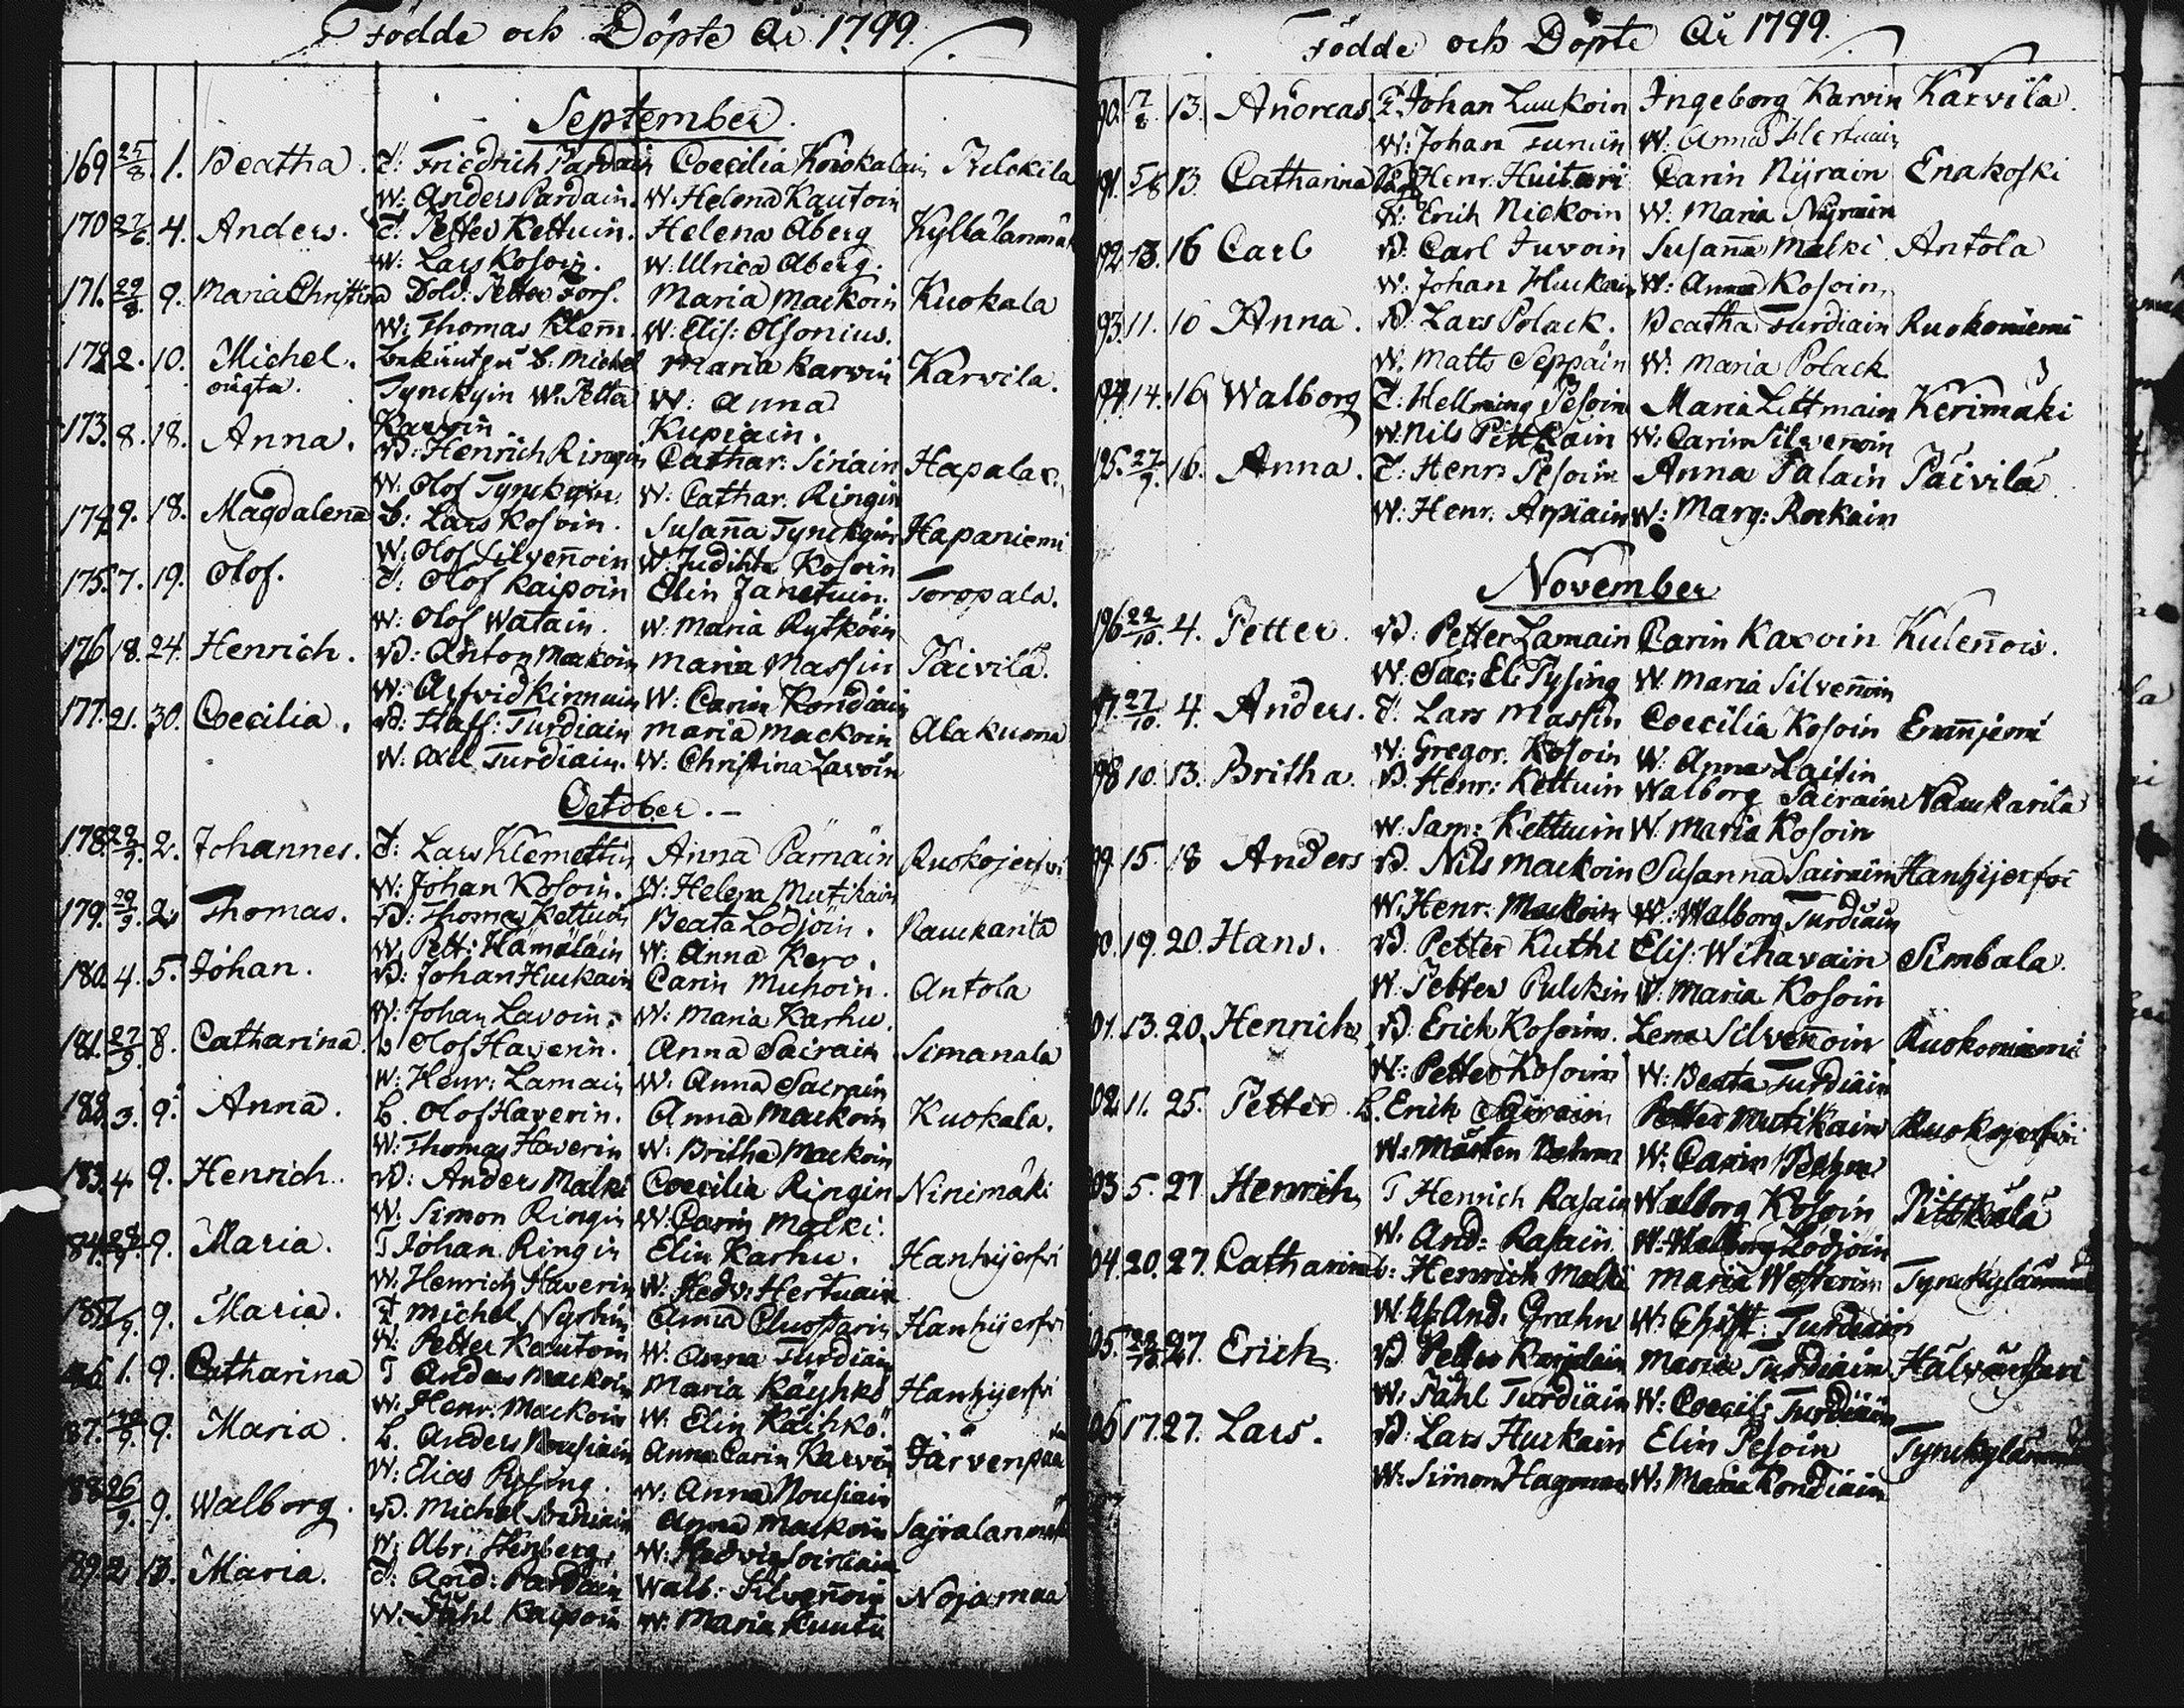 Födde och Döpte År 1799.
September.
169 25/8. 1. Beatha. T: Friedrich Pardain Coecilia Koskalain Pulckila
W: Anders Pardain. W: Helena Kautoin
170 27/6. 4. Anders. T: Petter Kettuin. Helena Åberg Kyllälänmäki
W: Lars Kosoin. W: Ulrica Åberg.
171. 29/8. 9. Maria Christina Dold: Petter Fors. Maria Mackoin Kuokala
W: Thomas Klem̄. W: Elis: Olsonius.
172 2. 10. Michel. b. Michel Maria Karvin Karvila.
oägta. Tynckyin W. Petter W: Anna
Karvin. Kupiain.
173. 8. 18. Anna. B: Henrich Ringin Cathar: Siriain Hapala
W. Olof Tynckyin. W: Cathar. Ringin
174 9. 18. Magdalena b: Lars Kosoin. Susan̄a Tynckyin Hapaniemi
W: Olof Silven̄oin W: Judihta Kosoin
175. 7. 19. Olof. T: Olof Kaipoin Elin Janetuin. Toropala.
W: Olof Watain. W: Maria Rytköin
176 18. 24. Henrich. B: Anton Mackoin Maria Massin Päivilä.
W: Arfvid Kinnuin W: Carin Kondiain
177. 21. 30. Coecilia. B: Staff: Turdiain Maria Mackoin Alakuona
W: Axel Turdiain. W: Christina Lavoin
October. -
178. 22/9. 2. Johannes. T: Lars Klemettin Anna Parnäin Ruokojerfvi
W: Johan Kosoin. W: Helena Mutikain
179. 29/9. 2. Thomas. B: Thomas Kettuin Beata Lodjöin. Raukarita
W. Pett: Hämäläin W: Anna Kero.
180. 4. 5. Johan. B: Johan Huckain Carin Muhoin. Antola
W: Johan Lavoin. W: Maria Karhu.
181. 27/9. 8. Catharina b Olof Haverin. Anna Sairain Simanala
W: Henr: Lamain W: Anna Sairain
182. 3. 9. Anna. b. Olof Haverin. Anna Mackoin Kuokala.
W: Thomas Haverin W: Britha Mackoin
183. 4. 9. Henrich. B: Anders Malki Coecilia Ringin Ninimäki
W. Simon Ringin W: Carin Malki.
84. 9. Maria. T Johan Ringin Elin Karhu. Hanhijerfvi
W: Henrich Haverin W: Hedv: Hertuain
185. 9. Maria. T Michel Nyrhin Anna Cluostarin Hanhijerfvi
W. Petter Kautoin W: Anna Turdiain
1. 9. Catharina T Anders Mackoin Maria Käyhkö Hanhijerfvi
W: Henr: Mackoin W. Elin Käihkö.
87. 9. Maria. b. Anders Nousiain Anna Carin Karvin Järvenpää
W: Elias Pysing. W: Anna Nousiain
88 26/9. 9. Walborg. B. Michel Anna Mackoin Sairalanmäki
W: Abr: Stenberg. W: Hedvig
89 2. 13. Maria. T: And: Pardain Walb: Silven̄oin Nojamaa
W. Påhl Kaipoin W: Maria Kuutu
Födde och Döpte År 1799.
90. 7/8. 13. Andreas. T. Johan Luukoin Ingeborg Karvin Karvila.
W: Johan W: Anna Hertuain
91. 5/8 13. Catharina Henr. Huitari Carin Nyrain Enakoski
W: Erich Nickoin W: Maria Nyrain
92. 13. 16 Carl B. Carl Juvoin Susan̄a Malki Antola
W: Johan Huckain W: Anna Kosoin.
93. 11. 16 Anna. B: Lars Polack. Beatha Turdiain Ruokoniemi
W. Matts Seppäin W: Maria Polack.
194 14. 16 Walborg T: Hellming Pesoin Maria Littmain Kerimäki
W: Nils Pittkäin W: Carin Silven̄oin
195. 27/9. 16. Anna. T: Henr: Pesoin Anna Palain Päivilä
W: Henr. Arpiain W: Marg: Rockain
November
196 22/10. 4. Petter. B: Petter Lamain Carin Karvoin Kulen̄ois.
W: Sac: El: Pysing W: Maria Silven̄oin
97. 27/10. 4. Anders. T. Lars Massin Coecilia Kosoin
W: Gregor. Kosoin W. Anna Laitin
198 10. 13. Britha. B. Henr: Kettuin Walborg Sairain Naukarita
W. Sam: Kettuin W: Maria Kosoin
99. 15. 18 Anders B. Nils Mackoin Susanna Sairain Hanhijerfvi
W: Henr: Mackoin W: Walborg Turdiain
19. 20. Hans. B. Petter Kuthi Elis: Wihavain Simbala.
W: Petter Pulckin W: Maria Kosoin
01. 13. 20. Henrich B: Erich Kosoin. Lena Silven̄oin Ruokoniemi
W: Petter Kosoin W: Beata Turdiain
02. 11. 25. Petter. b. Erich Sairain Mutikain Ruokojerfvi
W: Mårten W: Carin
03 5. 27 Henrich T Henrich Rasain Walborg Kosoin Pittkälä
W: And: Rasain W: Walborg Lodjoin
04. 20. 27. Catharina b: Henrich Malki Maria Westerin
W: And: Grahn W: Christ: Turdiain
05. 27. Erich. B. Petter Maria Turdiain
W: Påhl Turdiain W: Coecil: Turdiain
06 17. 27. Lars. B: Lars Huckain Elin Pesoin
W: Simon Hagman W: Maria Kondiain